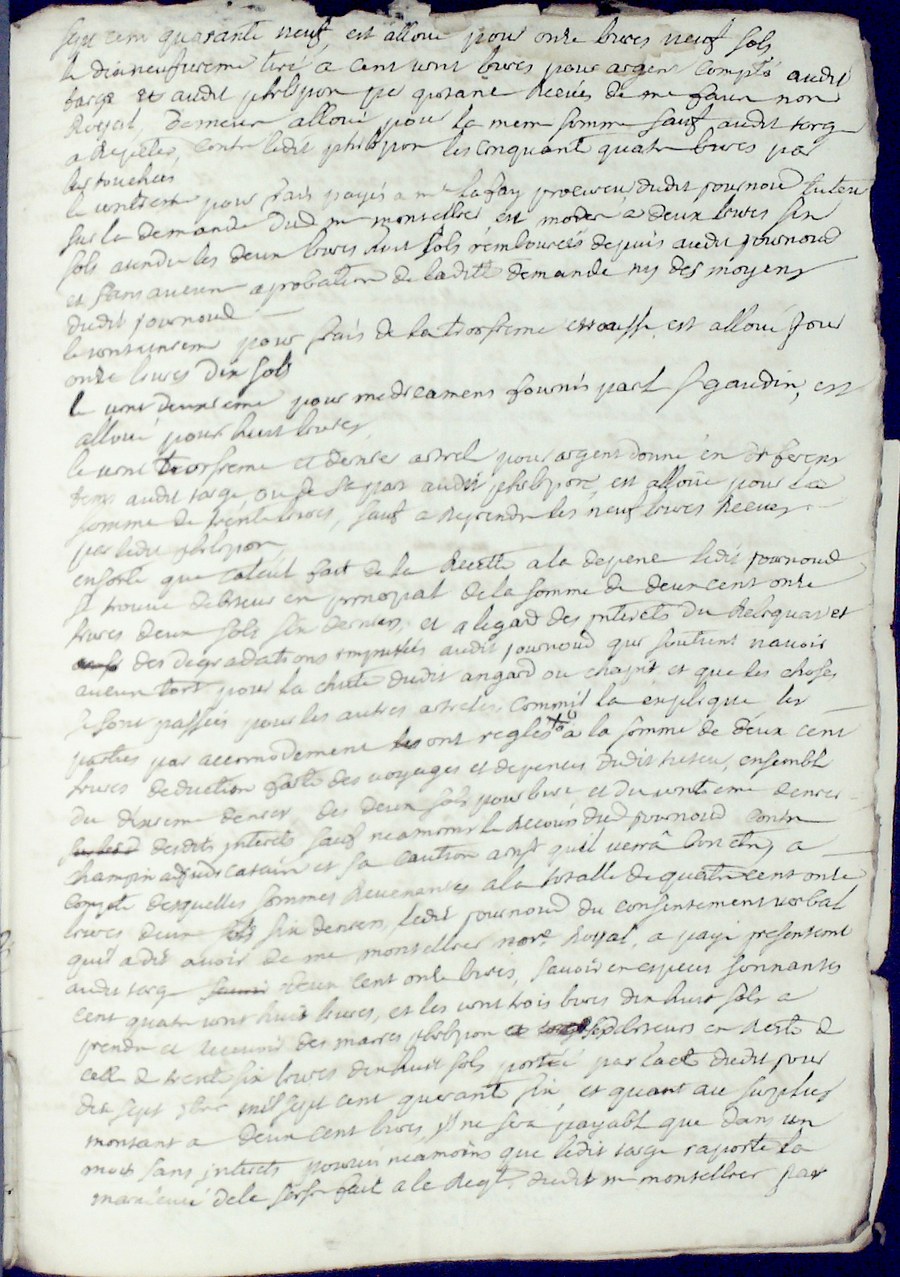 sept cent quarante neuf, est alloué pour onze livres neuf sols
le dixneufvieme tiré a cent vint livres pour argent compté audit
farge et audit phelipon par quitance Receue de me faure nore
Royal, demeure alloué pour la meme somme sauf audit farge
a Repeter, contre ledit phelipon les cinquante quatre livres par
luy touchées
le vintieme pour frais payés a me lafay procureur dudit pournoud tuteur
sur la demande dud me montellier est moderé a deux livres six
sols atendu les deux livres huit sols remboursés depuis audit pournoud
et sans aucune aprobation de ladite demande ny des moyens
dudit pournoud
le vintunieme pour frais de la troisieme est alloué pour
onze livres dix sols
le vint deuxieme pour medicamens fournis par le Sr gaudin, est
alloué pour huit livres
le vint troisieme et dernier article pour argent donné en diferens
tems audit farge ou de sa part audit phelipon, est alloué pour la
somme de trente livres, sauf a Reprendre les neuf livres Receues
par ledit phelipon
ensorte que calcul fait de la Recette a la depence ledit pournoud
se trouve debiteur en principal de la somme de deux cent onze
livres deux sols six deniers, et a legard des interets du Reliquat et
des degradations imputées audit pournoud qui soutient navoir
aucun tort pour la chute dudit angard ou chapit et que les choses
se sont passées pour les autres articles comme il la expliqué les
parties par accomodement les ont reglés a la somme de deux cent
livres deduction faite des voyages et depences dudit tuteur, ensemble
du dixieme denier des deux sols pour livre et du vintieme denier
desdits interets sauf neamoins le Recours dud pournoud contre
champin adjudicataire et sa caution ainsi quil verra bon etre, a
compte desquelles sommes Revenantes a la totalle de quatre cent onze
livres deux sols six deniers, ledit pournoud du consentement verbal
quil a dit avoir de me montellier nore Royal, a payé presentemt
audit farge deux cent onze livres, savoir en especes sonnantes
cent quatre vint huit livres, et les vint trois livres dix huit sols a
prendre et recevoir des maries phelipon debiteurs en Reste de
celle de trente six livres dix huit sols portée par lacte dudit jour
dix sept mil sept cent quarante six, et quant au surplus
montant a deux cent livres, il ne sera payable que dans un
mois sans interets pourvu neamoins que ledit farge raporte la
mainlevée de la saisie faite a la Reqte dudit me montellier par